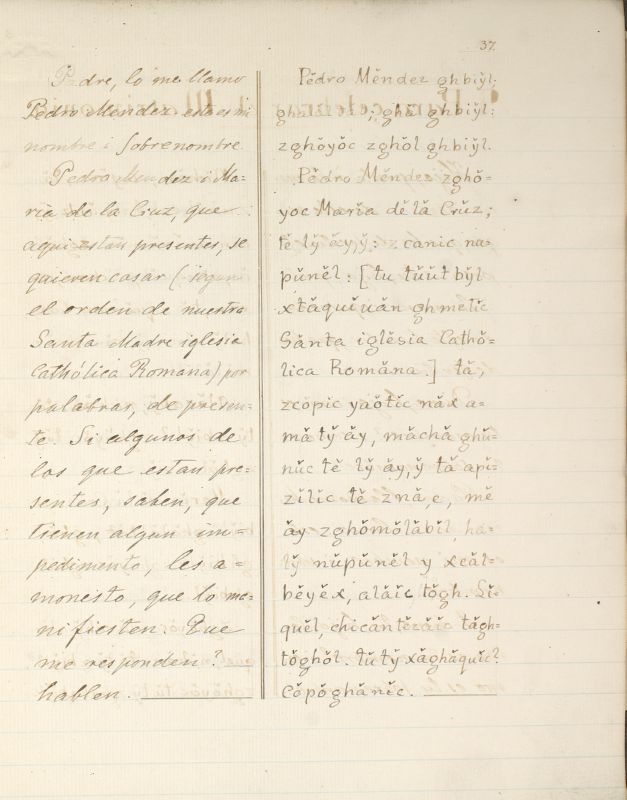 37.
Padre, lo me llamo
Pedro Mendez esta es mi
nombre i Sobrenombre.
Pedro Mendez i Ma=
ria de la Cruz, que
aqui estan presentes, se
quieren casar (segun
el orden de nuestra
Santa Madre iglesia
Cathólica Romana) por
palabras, de presen=
te. Si algunos de
los que estan pre=
sentes, saben, que
tienen algun im=
pedimento, les a=
monesto, que lo ma=
nifiesten. Que
me responden?
hablen.
Pĕdro Mĕndez ghbiy̆l:
ghbiy̆l:
zghŏyŏc zghŏl ghbiy̆l.
Pĕdro Mĕndez zghŏ=
yoc Marĭa dĕ lă Crŭz;
tĕ ly̆ ăy,y̆: canic na=
pŭnĕl: [tu tŭŭt by̆l
xtăquĭuăn ghmelĭc
Sănta iglĕsia Cathŏ=
lica Romăna.] tă,
zcŏpic yaŏtĭc năx a=
mă ty̆ ăy, măchă ghŭ=
nŭc tĕ ly̆ ăy,y̆ tă apĭ=
zĭlĭc tĕ znă,e, mĕ
ăy zghŏmŏlăbĭl, ha=
ly̆ nŭpŭnĕl y xcăl=
bĕyĕx, alăĭc tŏgh. Sĭ=
quĕl, chicăntĕzăĭc tăgh=
tŏghŏl. tŭ ty̆ xăghăquĭc?
Cŏpŏghănĭc.